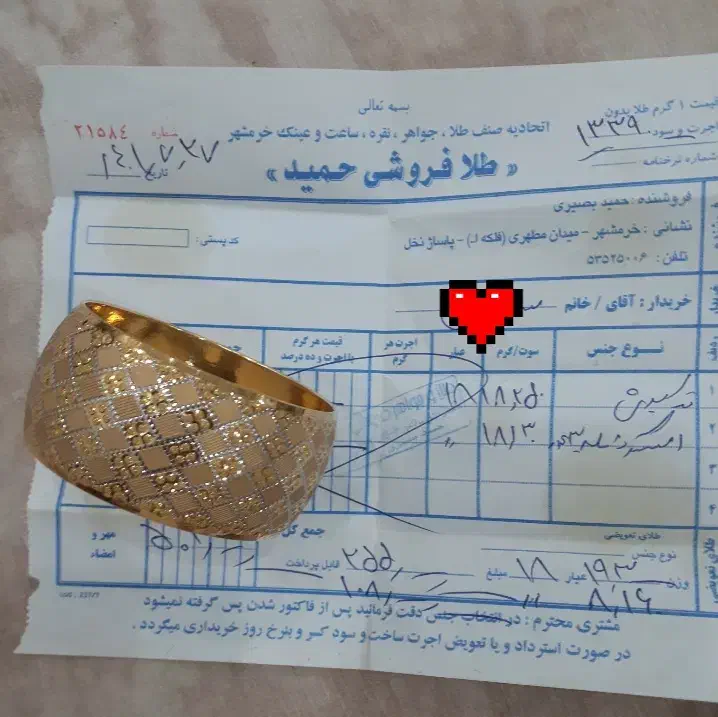 بسمه تعالی
اتحادیه صنف طلا ، جواهر ، نقره ، ساعت و عینک خرمشهر
« طلا فروشی حمید »
قیمت ۱ گرم طلا بدون
اجرت و سود
شماره نرخنامه :
شماره ۲۱۵۸٤
تاریخ
فروشنده : حمید بصیری
نشانی : خرمشهر - میدان مطهری (فلکه الله) - پاساژ نخل
کد پستی :
تلفن : ۵۳۵۲۵۰۰۶
خریدار : آقای / خانم
نــوع جنس سوت/گرم عیار اجرت هر گرم قیمت هر گرم با اجرت و ده درصد
۱ ۱۸
۲ ۱۸/۳۰ "
۳
۴
جمع کل
طلای تعویضی
نوع جنس
وزن عیار ۱۸ مبلغ قابل پرداخت
۸/۱۶
مهر و امضاء
مشتری محترم : در انتخاب جنس دقت فرمائید پس از فاکتور شدن پس گرفته نمیشود
در صورت استرداد و یا تعویض اجرت ساخت و سود کسر و بنرخ روز خریداری میگردد .